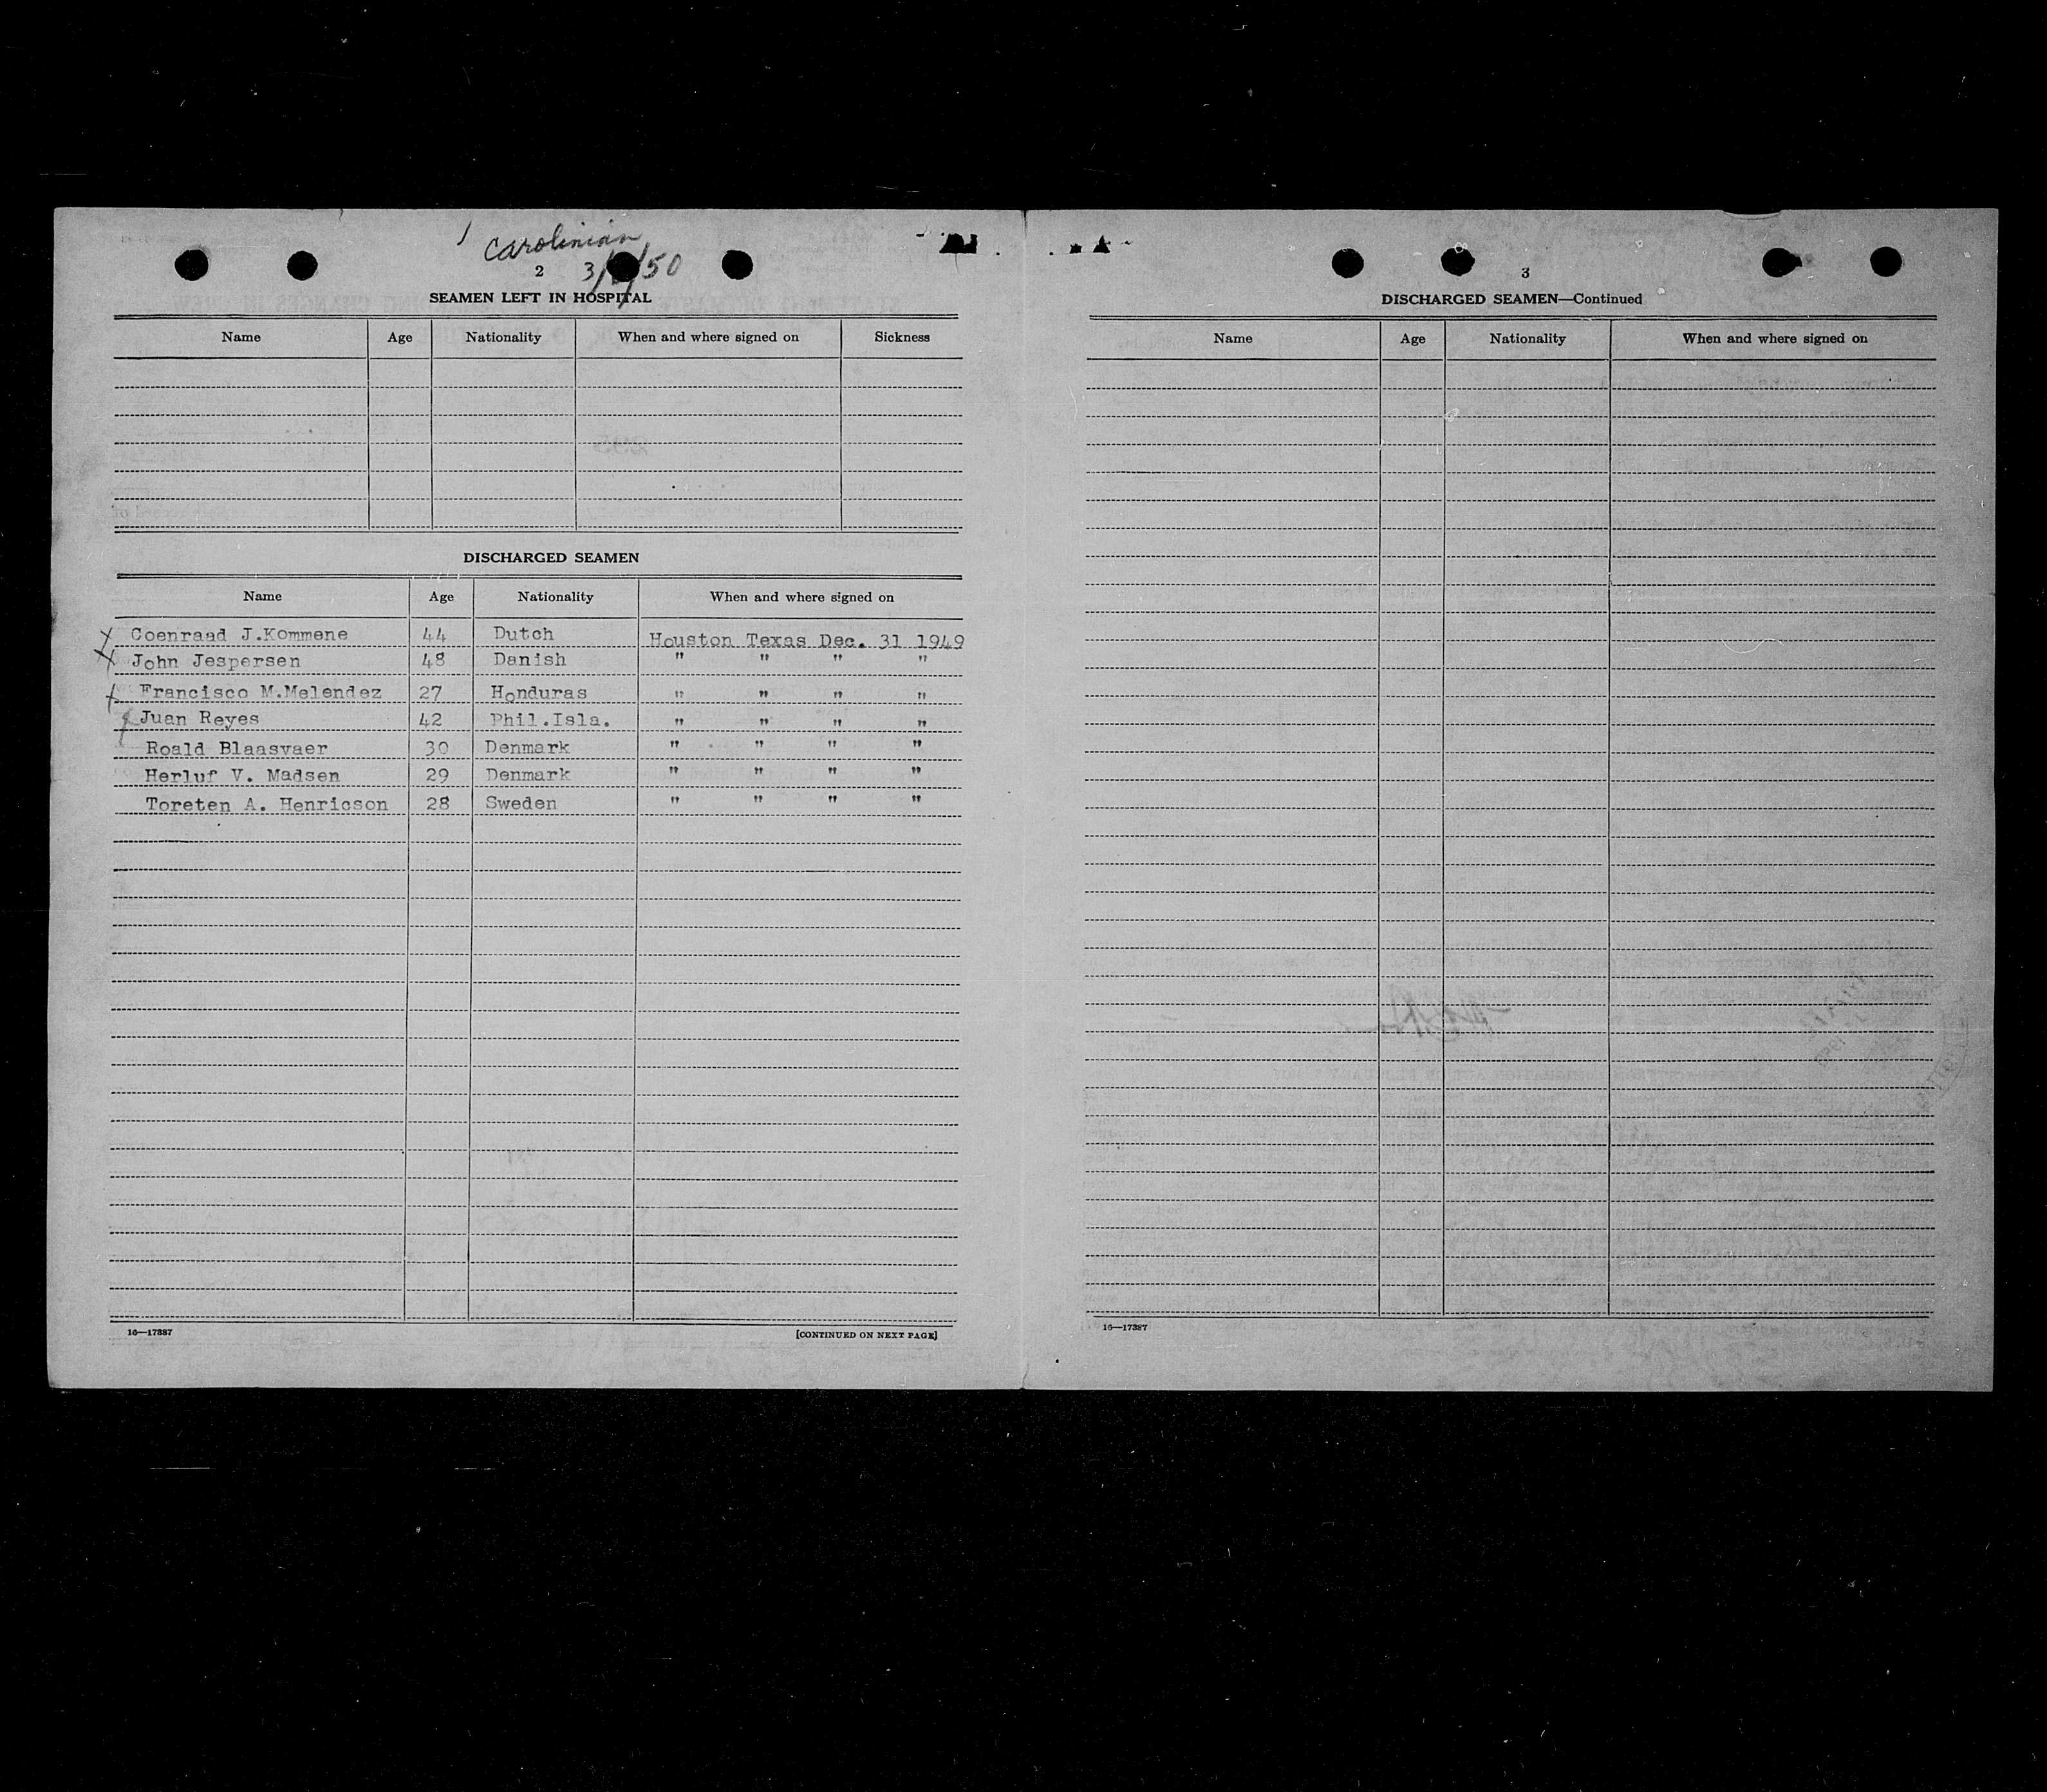 Carolinian
2 3/ /50
SEAMEN LEFT IN HOSPITAL
Name Age Nationality When and where signed on Sickness
DISCHARGED SEAMEN
Name Age Nationality When and where signed on
Coenraad J.Kommene 44 Dutch Houston Texas Dec. 31 1949
John Jespersen 48 Danish " " " "
Francisco M.Melendez 27 Honduras " " " "
Juan Reyes 42 Phil.Isla. " " " "
Roald Blaasvaer 30 Denmark " " " "
Herluf V. Madsen 29 Denmark " " " "
Toreten A. Henricson 28 Sweden " " " "
16—17387 [CONTINUED ON NEXT PAGE]
3
DISCHARGED SEAMEN—Continued
Name Age Nationality When and where signed on
16—17387